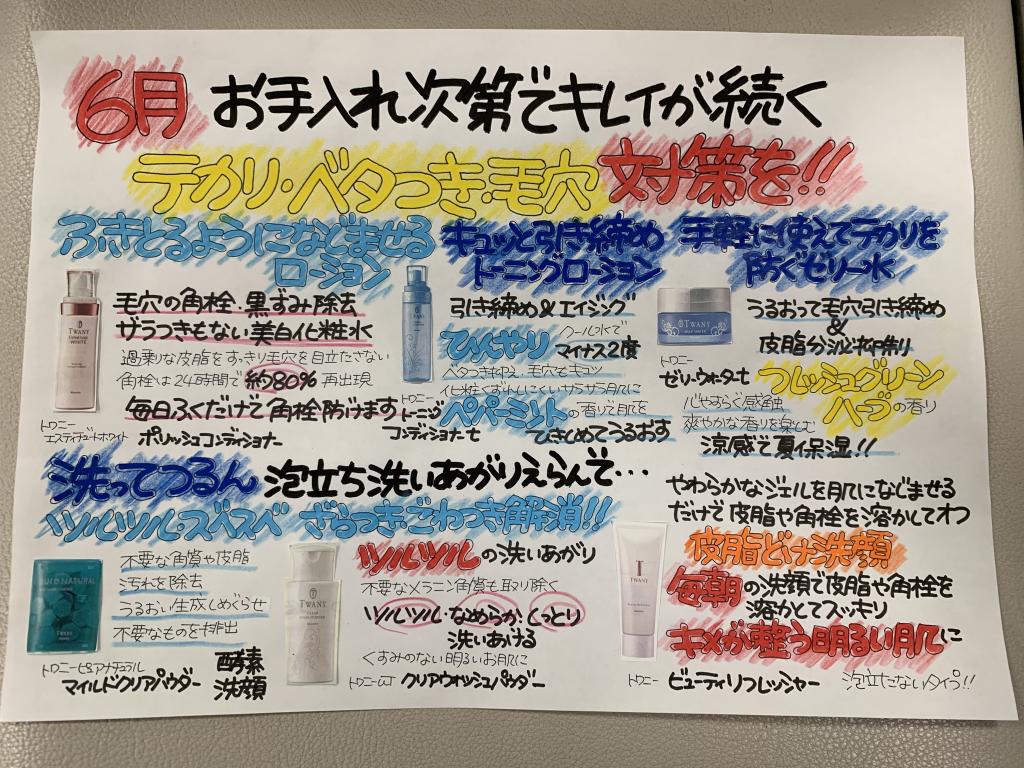 6月 お手入れ次第でキレイが続く
テカリ・ベタつき・毛穴 対策を!!
ふきとるようになじませる
ローション
毛穴の角栓・黒ずみ除去
ザラつきもない美白化粧水
過乗りな皮脂をすっきり毛穴を目立たさない
角栓は24時間で約80%再出現
毎日ふくだけで角栓防げます
トワニー
エスティチュードホワイト ポリッシュコンディショナー
キュッと引き締め
トーニングローション
引き締め&エイジング
ひんやり マイナス2度
ベタつき抑え 毛穴もキュッ
化粧くずれしにくいサラサラ肌に
ペパーミントの香りで肌を
ひきしめてうるおす
トワニー
トーニング
コンディショナーt
手軽に使えてテカリを
防ぐゼリー水
うるおって毛穴引き締め
&
皮脂分泌抑制
トワニー
ゼリーウォーターt
フレッシュグリーン
ハーブの香り
心やすらぐ感触
爽やかな香りを楽しむ
涼感で夏保湿!!
洗ってつるん 泡立ち洗いあがりえらんで…
ツルツル・スベスベ ざらつき・ごわつき解消!!
TWANY
不要な角質や皮脂
汚れを除去
うるおい生成しめぐらせ
不要なものを排出
トワニーピュアナチュラル
マイルドクリアパウダー
酵素
洗顔
TWANY
ツルツルの洗いあがり
不要なメラニン角質も取り除く
ツルツル・なめらか・しっとり
洗いあげる
くすみのない明るいお肌に
トワニー クリアウォッシュパウダー
TWANY
やわらかなジェルを肌になじませる
だけで皮脂や角栓を溶かしてオフ
皮脂どけ洗顔
毎朝の洗顔で皮脂や角栓を
溶かしてスッキリ
キメが整う明るい肌に
トワニー ビューティリフレッシャー 泡立たないタイプ!!